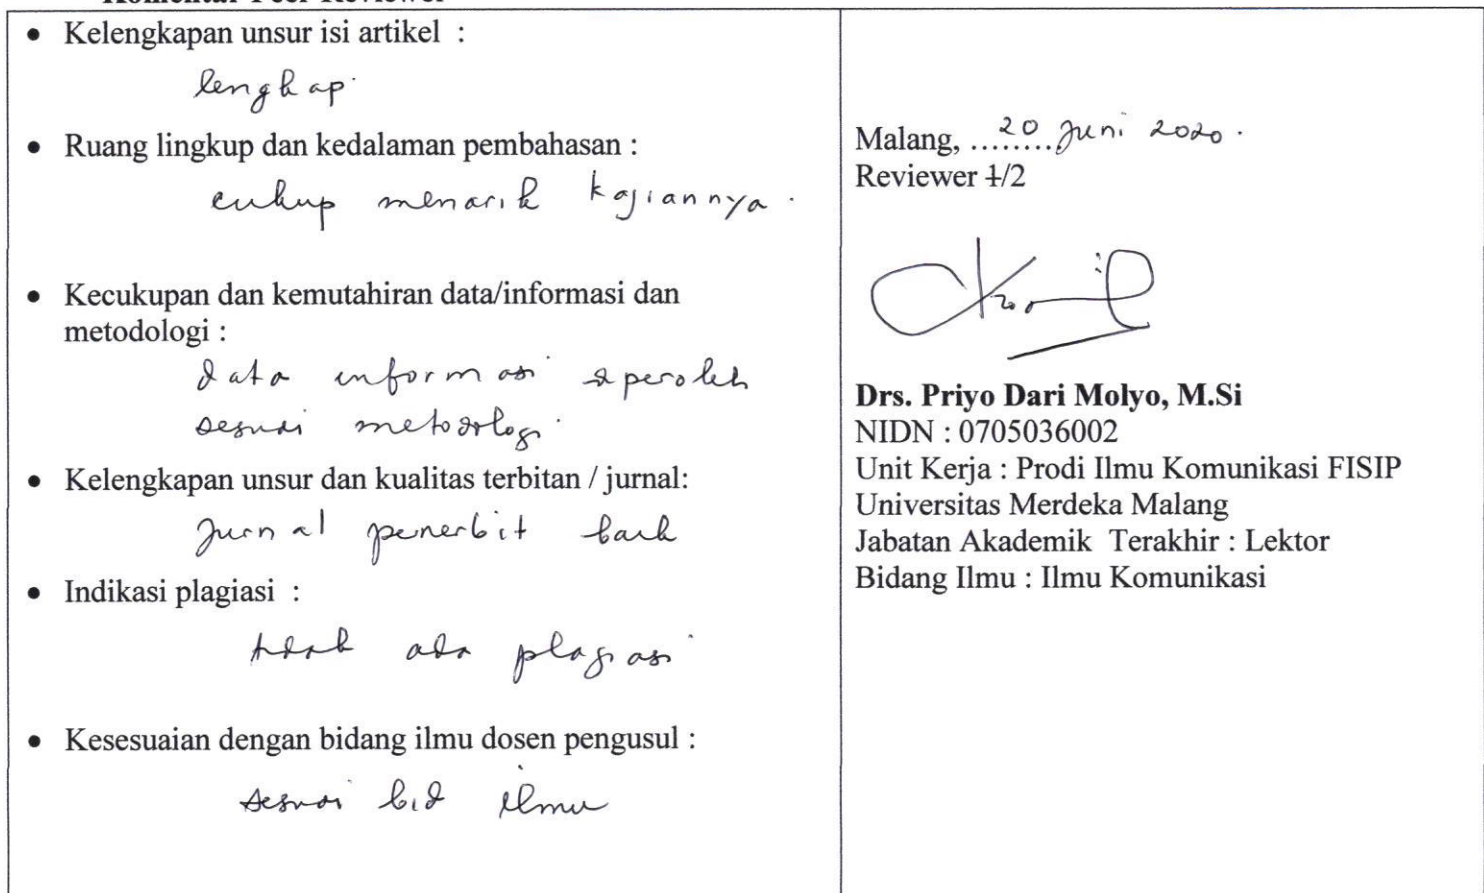 Komentar Peer Reviewer
• Kelengkapan unsur isi artikel :
lengkap
• Ruang lingkup dan kedalaman pembahasan :
cukup menarik kajiannya.
• Kecukupan dan kemutahiran data/informasi dan
metodologi :
data informasi diperoleh
sesuai metodologi
• Kelengkapan unsur dan kualitas terbitan / jurnal:
Jurnal penerbit baik
• Indikasi plagiasi :
tidak ada plagiasi
• Kesesuaian dengan bidang ilmu dosen pengusul :
sesuai bid ilmu
Malang, ........ 20 Juni 2020.
Reviewer 1/2
Drs. Priyo Dari Molyo, M.Si
NIDN : 0705036002
Unit Kerja : Prodi Ilmu Komunikasi FISIP
Universitas Merdeka Malang
Jabatan Akademik Terakhir : Lektor
Bidang Ilmu : Ilmu Komunikasi